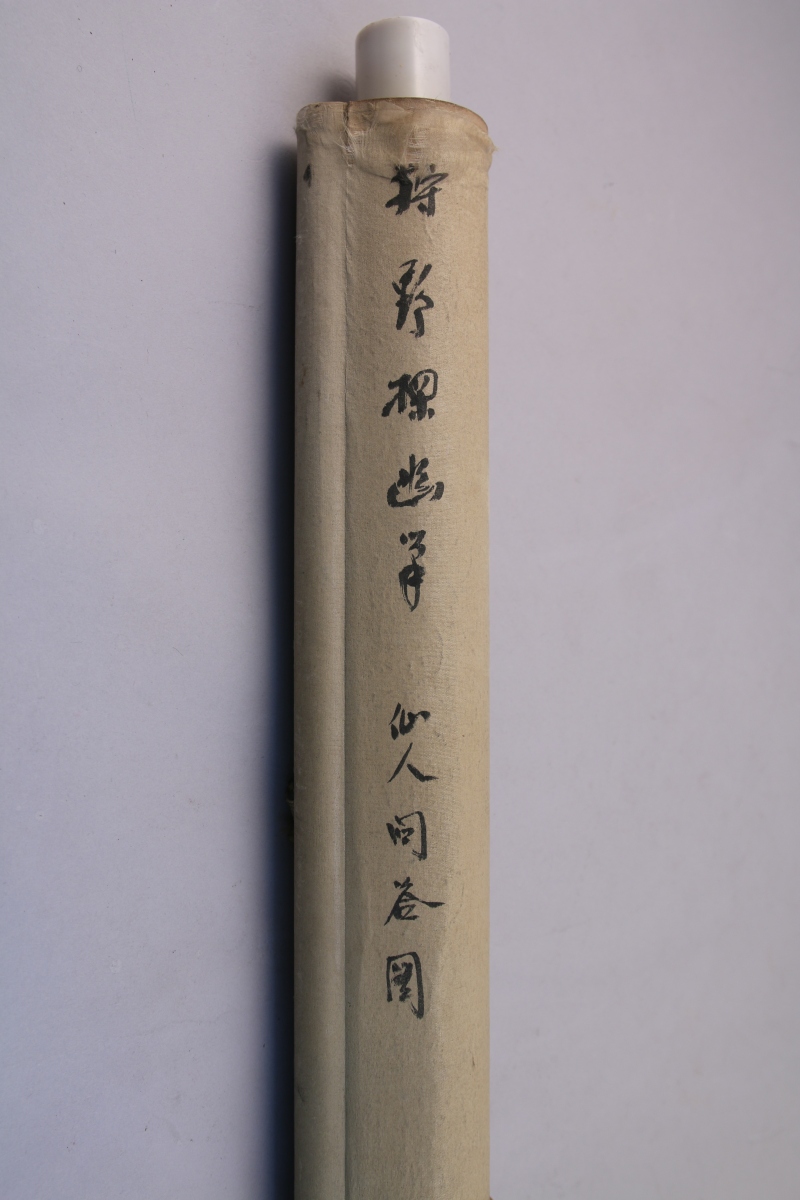 狩野探幽筆 仙人問答圖